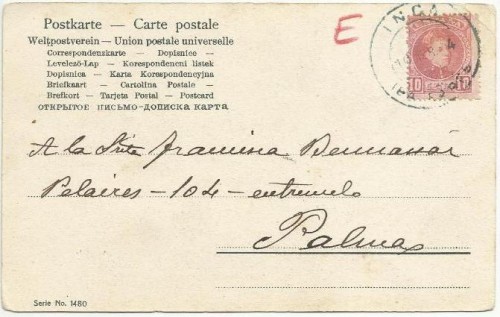 Postkarte — Carte postale
Weltpostverein — Union postale universelle
Correspondenzkarte — Dopisnice —
Levelező-Lap — Korespondencni listek
Dopisnica — Karta Korespondencyjna
Briefkaart — Cartolina Postale —
Brefkort — Tarjeta Postal — Postcard
ОТКРЫТОЕ ПИСЬМО-ДОПИСКА КАРТА
E
INCA
10 10
A la Srta Francina Bennasár
Pelaires - 104 - entresuelo
Palma
Serie No. 1480